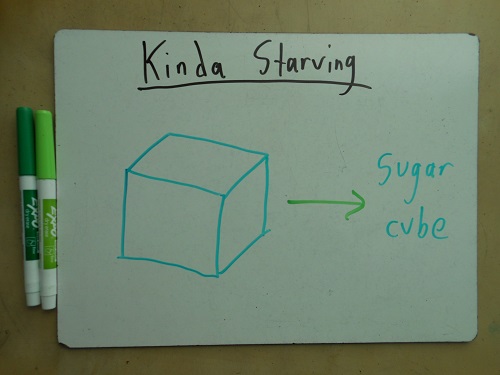 Kinda Starving
Sugar
cube
EXPO
EXPO